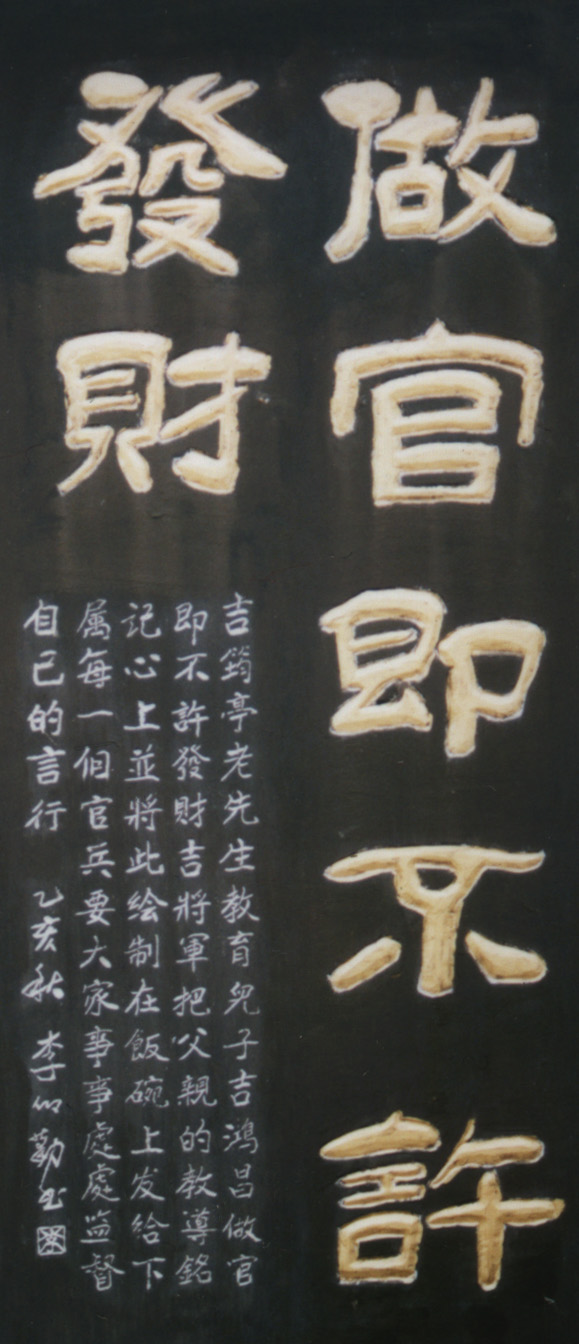 做官即不許
發財
吉筠亭老先生教育兒子吉鴻昌做官
即不許發財吉將軍把父親的教導銘
記心上並將此绘制在飯碗上发给下
属每一個官兵要大家事事處處监督
自己的言行 乙亥秋 李 勤书